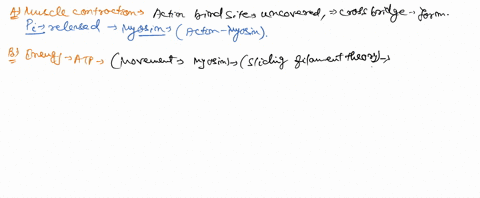 A) Muscle contraction → Actin bind sites uncovered, → cross bridge → form.
Pi → released → Myosin → (Actin-Myosin).
B) Energy → ATP → (Movement → Myosin) → (Sliding filament theory) →